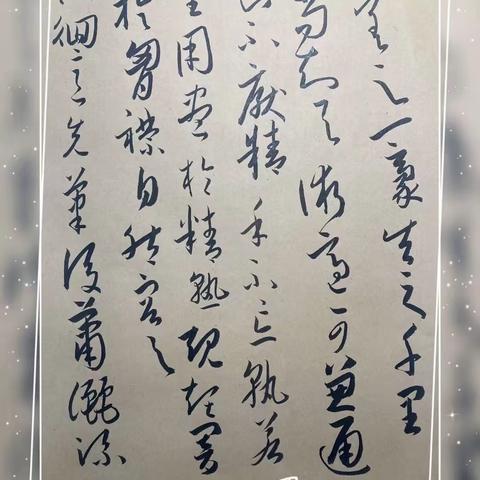 差之一豪失之千里
苟知其術適可兼通
不厭精手不忘孰若
用盡於精熟規矩闇
於胸襟自然容與
徊意先筆後蕭灑流